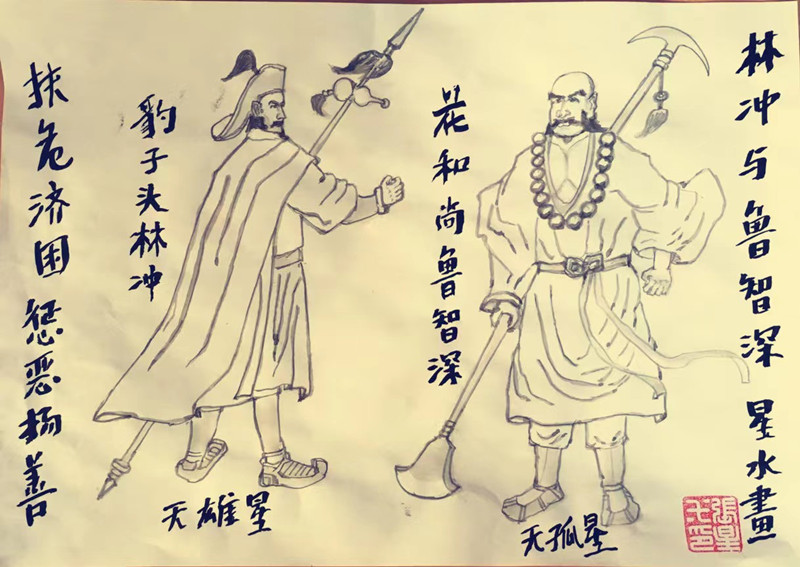 林冲与鲁智深 星水畫
花和尚鲁智深
天孤星
豹子头林冲
天雄星
扶危济困惩恶扬善